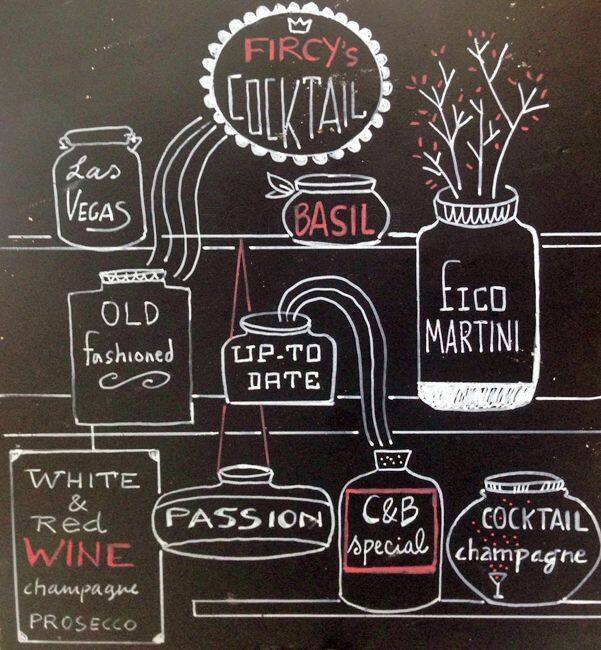 FIRCY's
COCKTAIL
Las
VEGAS
BASIL
OLD
fashioned
UP-TO
DATE
FICO
MARTINI
WHITE
&
Red
WINE
champagne
PROSECCO
PASSION
C&B
special
COCKTAIL
champagne